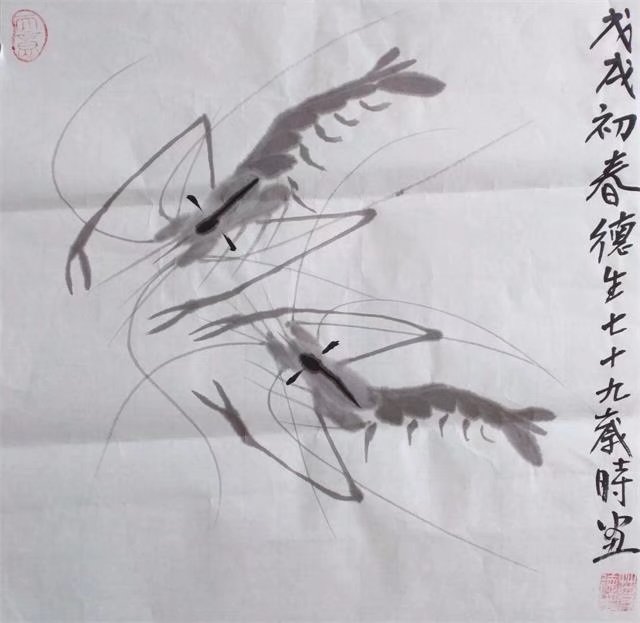 戊戌初春德生七十九岁時画